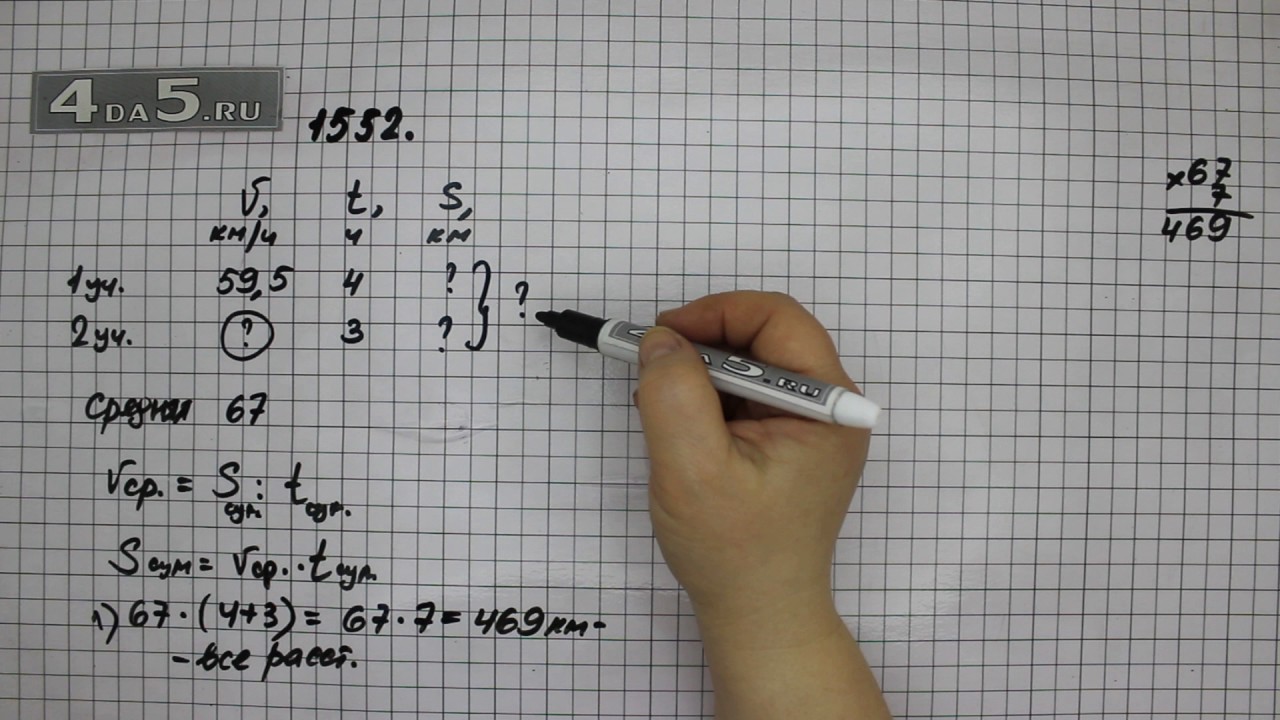 4DA5.RU
1552.
V, t, S,
км/ч ч км
1 уч. 59,5 4 ?
2 уч. ? 3 ?
?
Средняя 67
Vср. = Sсум. : tсум.
Sсум = Vср. · tсум.
1) 67 · (4+3) = 67 · 7 = 469 км -
- все расст.
×67
7
469
5.RU